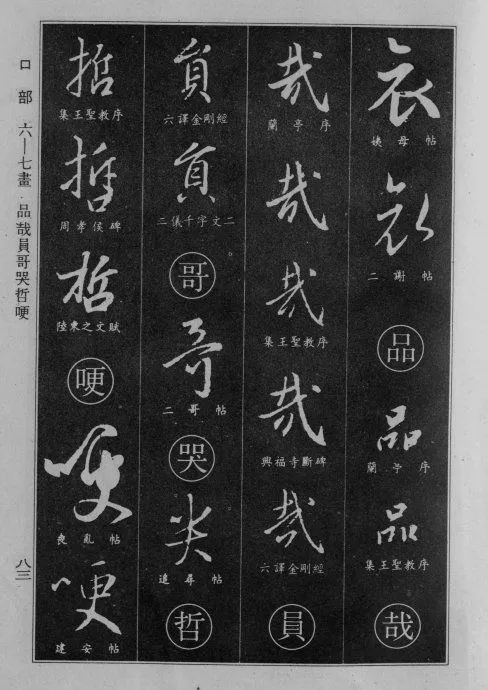 哀
姨母帖
哀
二謝帖
品
品
蘭亭序
品
集王聖教序
哉
哉
蘭亭序
哉
哉
集王聖教序
哉
興福寺斷碑
哉
六譯金剛經
員
員
六譯金剛經
員
二儀千字文二
哥
哥
二哥帖
哭
哭
追尋帖
哲
哲
集王聖教序
哲
周孝侯碑
哲
陸柬之文賦
哽
哽
喪亂帖
哽
建安帖
口部 六—七畫 品哉員哥哭哲哽
八三